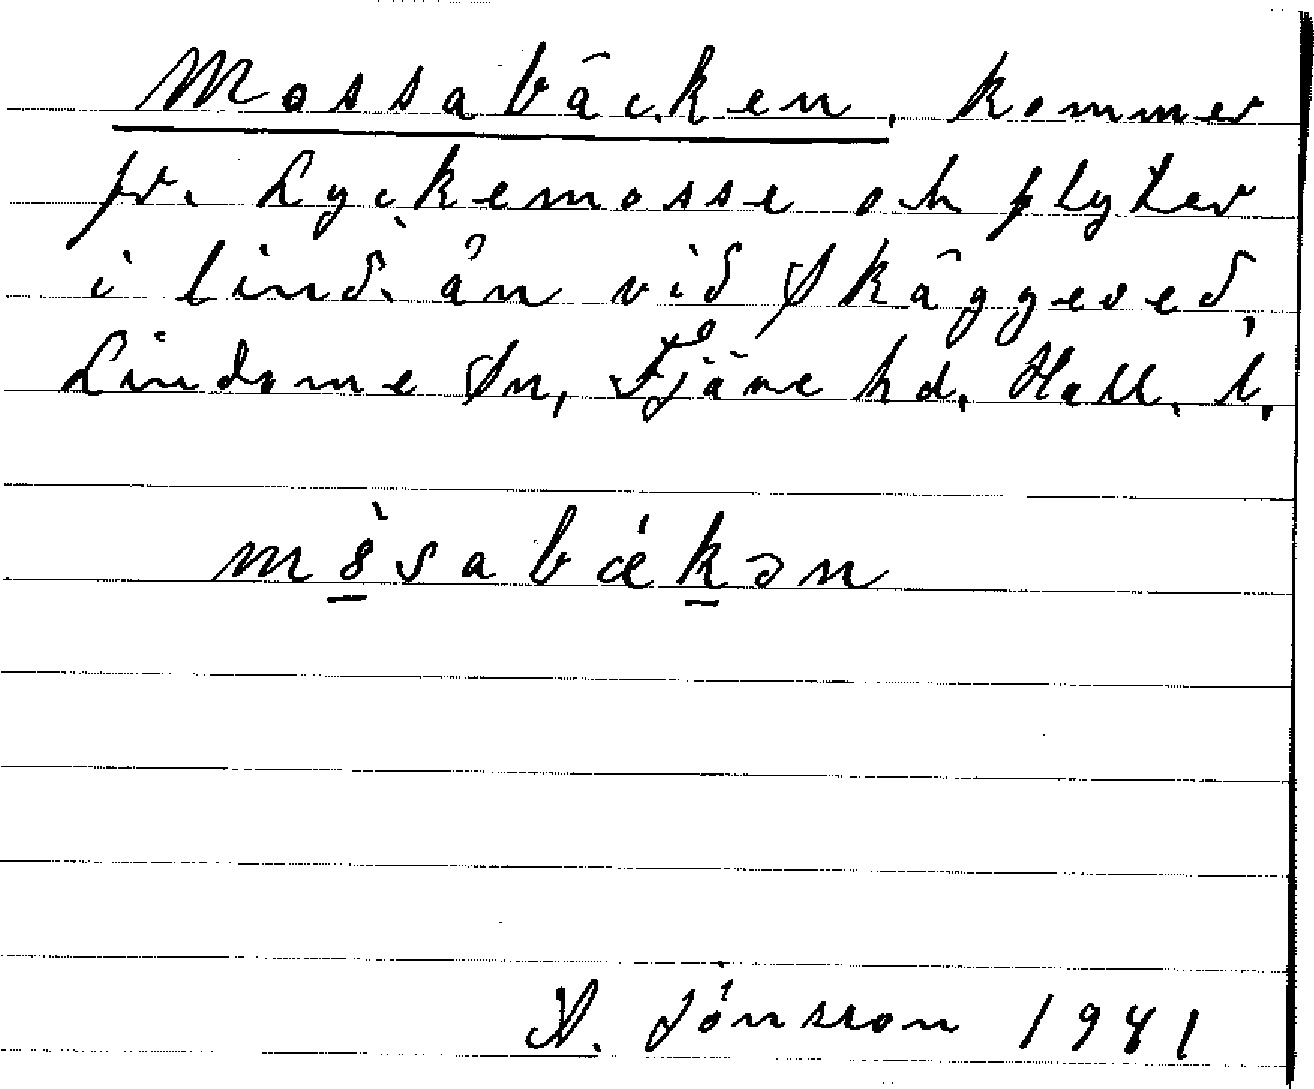 Mossabäcken, kommer
fr. Lyckemosse och flyter
i lind. ån vid Skäggered,
Lindome Sn, Fjäre hd. Hall. l.
mȯ̀sabækən
N. Jönsson 1941